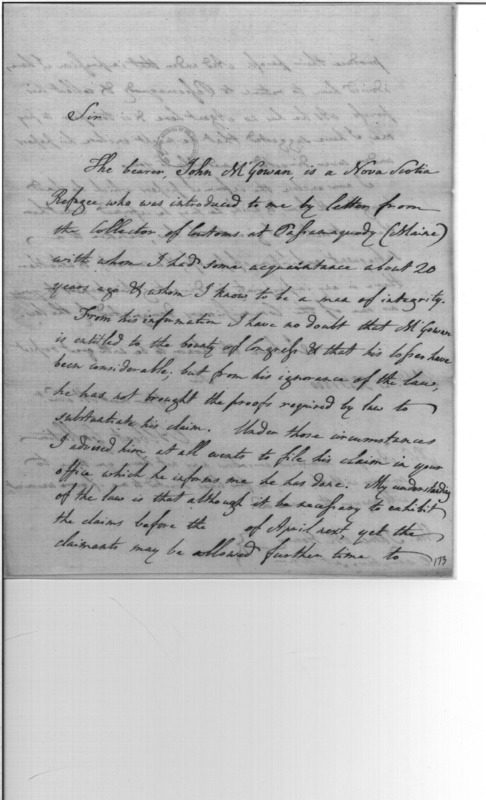 Sir
The bearer, John McGowan, is a Nova Scotia
Refugee who was introduced to me by letter from
the Collector of Customs at Passamaquody (Maine)
with whom I had some acquaintance about 20
years ago & whom I know to be a man of integrity.
From his information I have no doubt that McGowan
is entitled to the bounty of Congress & that his losses have
been considerable; but from his ignorance of the law,
he has not brought the proofs required by law to
substantiate his claim. Under those circumstances
I advised him, at all events to file his claim in your
office which he informs me he has done. My understanding
of the law is that although it be necessary to exhibit
the claims before the of April next, yet the
claimants may be allowed further time to
173